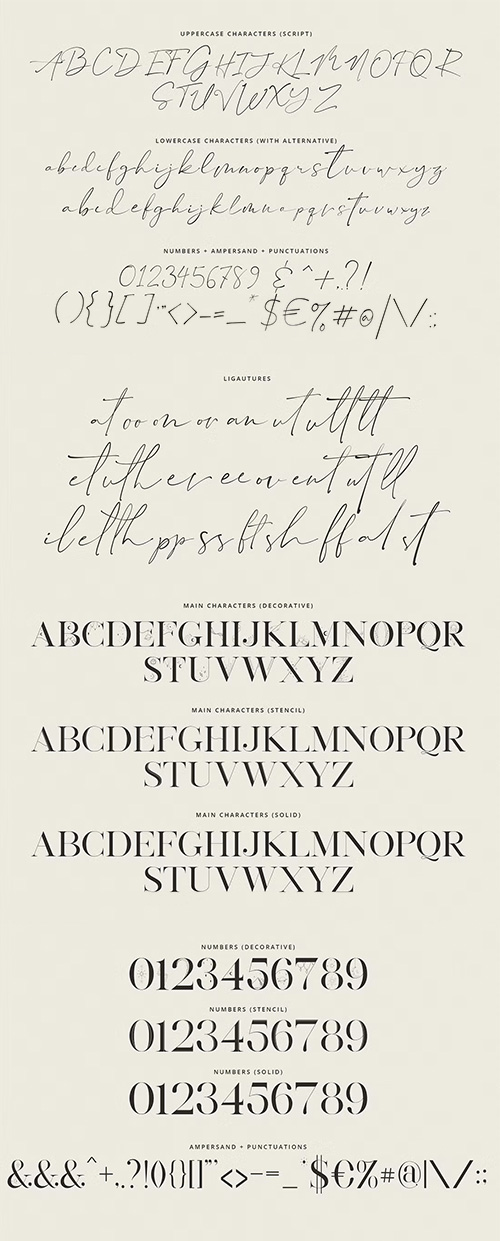 UPPERCASE CHARACTERS (SCRIPT)
ABCDEFGHIJKLMNOPQR
STUVWXYZ
LOWERCASE CHARACTERS (WITH ALTERNATIVE)
abcdefghijklmnopqrstuvwxyz
abcdefghijklmnopqrstuvwxyz
NUMBERS + AMPERSAND + PUNCTUATIONS
0123456789 & ^+,.?!
(){}[]'"<>-=_*$€%#@|\/:;
LIGAUTURES
at oo on or an ut utt tt
et uth er ee ov ent ut ll
il ett th pp ss ft sh ff al st
MAIN CHARACTERS (DECORATIVE)
ABCDEFGHIJKLMNOPQR
STUVWXYZ
MAIN CHARACTERS (STENCIL)
ABCDEFGHIJKLMNOPQR
STUVWXYZ
MAIN CHARACTERS (SOLID)
ABCDEFGHIJKLMNOPQR
STUVWXYZ
NUMBERS (DECORATIVE)
0123456789
NUMBERS (STENCIL)
0123456789
NUMBERS (SOLID)
0123456789
AMPERSAND + PUNCTUATIONS
&&&^+,.?!(){}[]"'<>-=_*$€%#@|\/:;